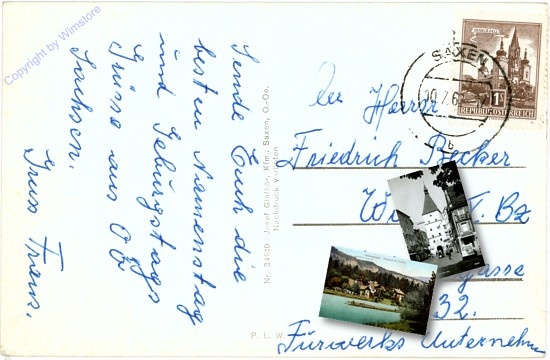 Copyright by Wimstore
Sende Euch die
besten Namenstag
und Geburtstags
Grüsse aus OÖ
Sachsen.
Gruss Franz.
Nr. 34510 Josef Günther, Kfm. Saxen, O.-Oe.
Nachdruck verboten
P. L. W.
SAXEN
10.7.6
b
REPUBLIK ÖSTERREICH
1
Herrn
Friedrich Becker
Bz
gasse
32.
Fürwerks Unternehm